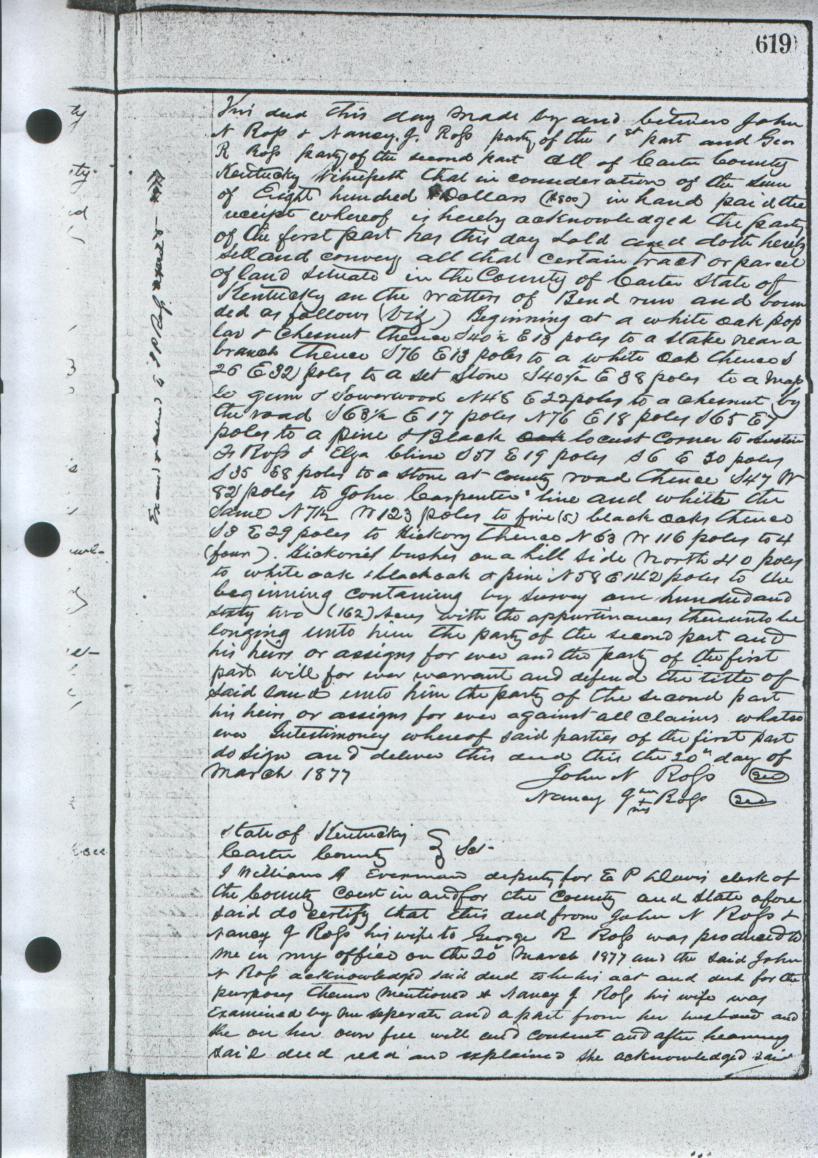 619
This deed this day made by and between John
N Ross & Nancy. J. Ross party of the 1st part and Geo
R Ross party of the second part all of Carter County
Kentucky Witnesseth that in consideration of the sum
of Eight hundred Dollars ($800) in hand paid the
receipt whereof is hereby acknowledged the party
of the first part has this day sold and doth hereby
sell and convey all that certain tract or parcel
of land situate in the County of Carter State of
Kentucky on the watters of Bend run and boun
ded as follows (viz) Beginning at a white oak pop
lar & Chesnut thence S40½ E13 poles to a stake near a
branch thence S76 E13 poles to a white oak thence S
26 E32 poles to a set stone S40½ E 38 poles to a map
le gum & Sowerwood N48 E22 poles to a chesnut by
the road S63½ E 17 poles N76 E18 poles S65 E7
poles to a pine & Black oak locust Corner to
Ross & Elza Cline S51 E19 poles S6 E 30 poles
S35 E8 poles to a stone at County road thence S47 W
82 poles to John Carpenter's line and whith the
same N71½ W123 poles to five (5) black oaks thence
S9 E29 poles to Hickory thence N63 W 116 poles to 4
(four). Hickories bushes on a hill side North 40 poles
to white oak & black oak & pine N58 E142 poles to the
beginning containing by survey one hundred and
sixty two (162) acres with the appurtinances thereunto be
longing unto him the party of the second part and
his heirs or assigns for ever and the party of the first
part will for ever warrant and defend the title of
said land unto him the party of the second part
his heirs or assigns for ever against all claims whatso
ever Intestimony whereof said parties of the first part
do sign and deliver this deed this the 20th day of
March 1877
John N Ross Seal
Nancy J her + mark Ross Seal
State of Kentucky
Carter County } Sct-
I William A. Everman deputy for E P Davis clerk of
the County Court in and for the County and State afore
said do certify that this deed from John N Ross &
Nancy J Ross his wife to George R Ross was produced to
me in my office on the 20th March 1877 and the said John
N Ross acknowledged said deed to be his act and deed for the
purposes therein mentioned & Nancy J Ross his wife was
examined by me seperate and apart from her husband and
she on her own free will and consent and after hearing
said deed read and explained she acknowledged said